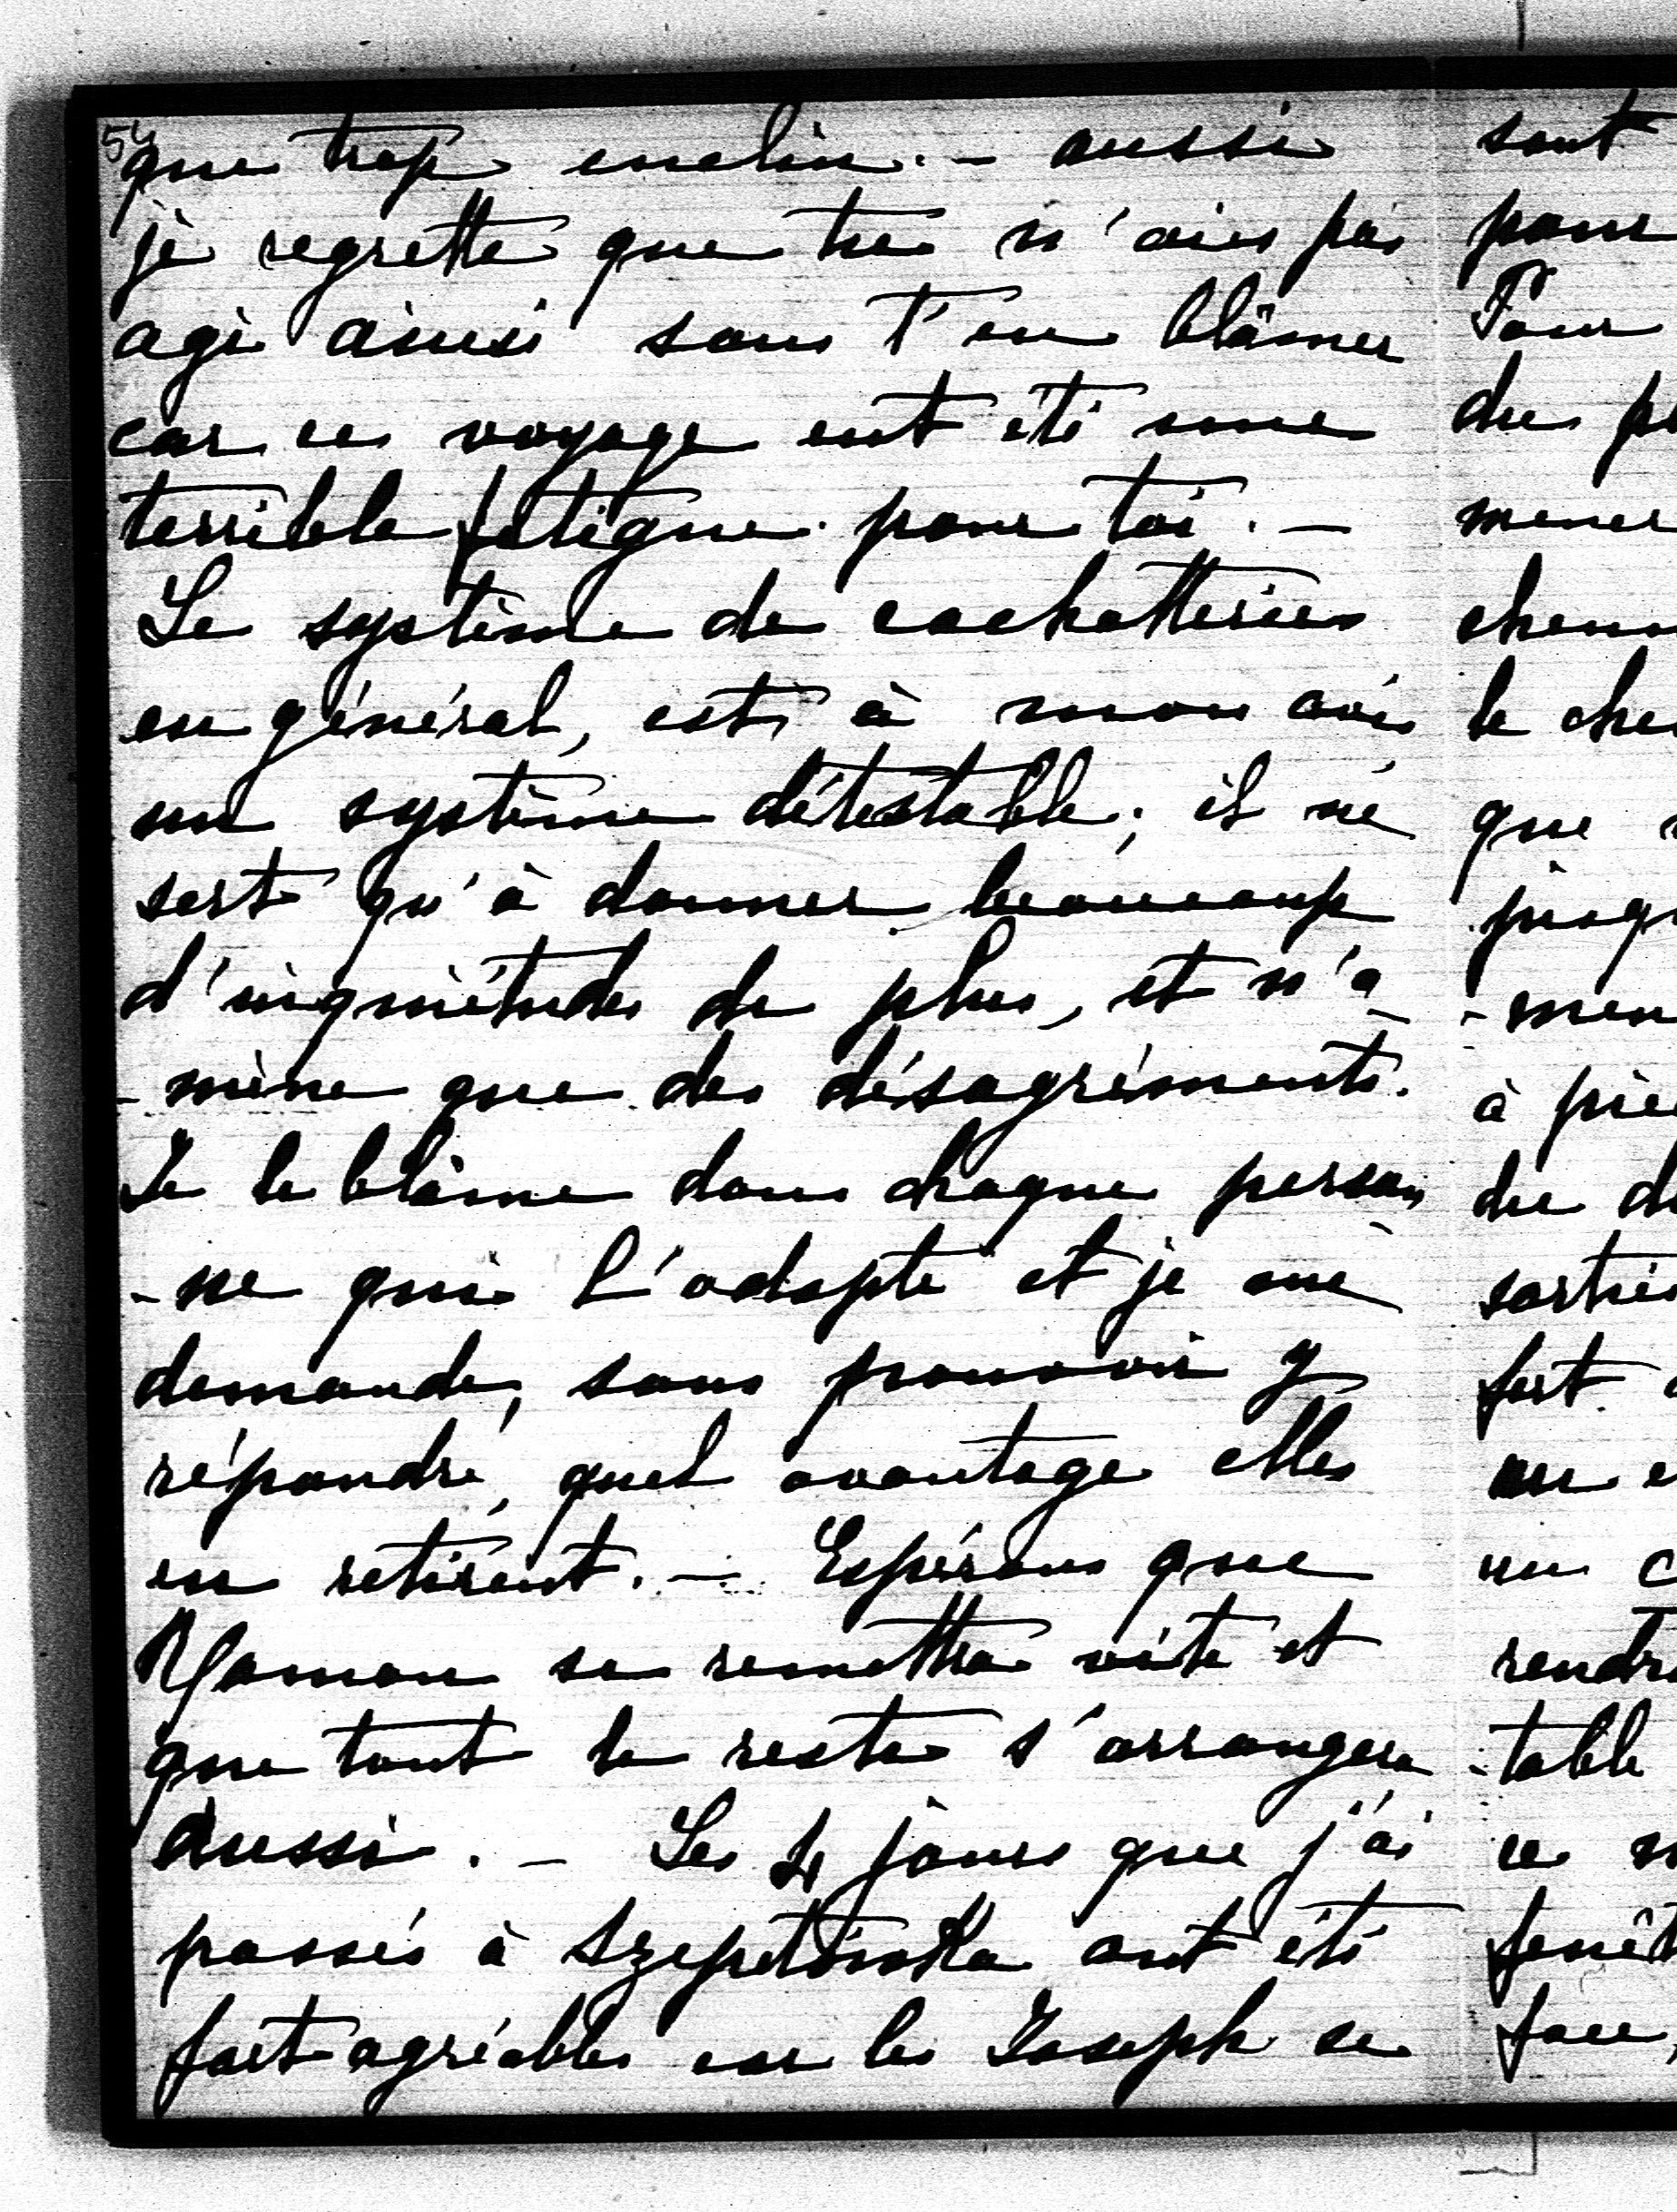 54
que trop enclin. - aussi
je regrette que tu n'aies pas
agi ainsi sans t'en blâmer
car ce voyage eut été une
terrible fatigue pour toi. -
Le système de cachotteries
en général, est à mon avis
un système détestable; il ne
sert qu'à donner beaucoup
d'inquiétudes de plus, et n'a-
-mène que des désagréments.
Je le blâme dans chaque person
-ne qui l'adopte et je me
demande, sans pouvoir y
répondre, quel avantage elles
en retirent. - Espérons que
Maman se remettra vite et
que tout le reste s'arrangera
aussi. - Les 4 jours que j'ai
passés à Szepetówka ont été
fort agréables car les Joseph se
sont
pour
Pour
du p
mener
chem
le che
que
jusqu
-men
à pie
du d
sortie
fort
au
un c
rendr
-table
ce
fenêt
face,